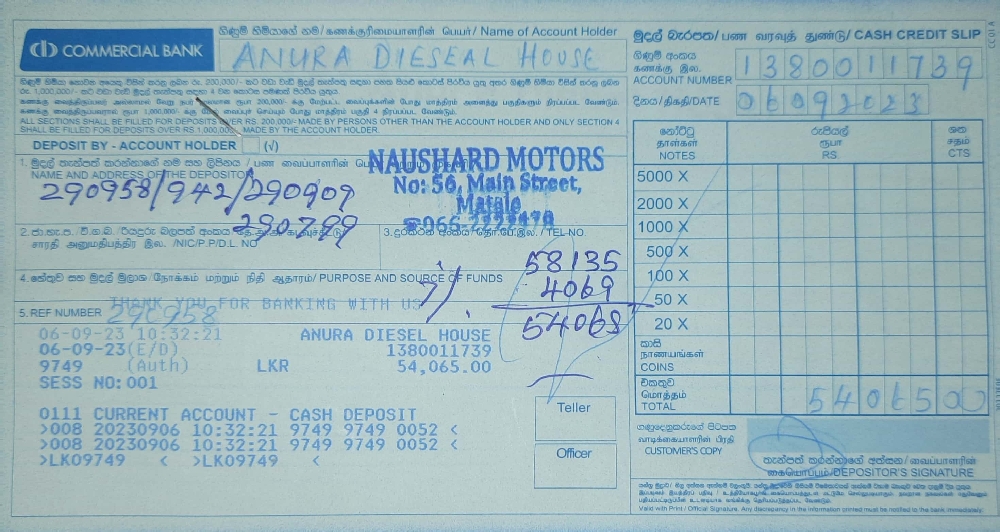 COMMERCIAL BANK
ගිණුම් හිමියාගේ නම / கணக்குரிமையாளரின் பெயர்/ Name of Account Holder
ANURA DIESEAL HOUSE
ALL SECTIONS SHALL BE FILLED FOR DEPOSITS OVER RS. 200,000/- MADE BY PERSONS OTHER THAN THE ACCOUNT HOLDER AND ONLY SECTION 4
SHALL BE FILLED FOR DEPOSITS OVER RS. 1,000,000/- MADE BY THE ACCOUNT HOLDER.
DEPOSIT BY - ACCOUNT HOLDER (√)
NAME AND ADDRESS OF THE DEPOSITOR
290958/942/290909
290799
NAUSHARD MOTORS
No: 56, Main Street,
Matale
☎066-2222479
/NIC/P.P/D.L NO
/TEL NO.
4. PURPOSE AND SOURCE OF FUNDS
58135
7%. 4069
54068
THANK YOU FOR BANKING WITH US
5. REF NUMBER 290958
06-09-23 10:32:21 ANURA DIESEL HOUSE
06-09-23(E/D) 1380011739
9749 (Auth) LKR 54,065.00
SESS NO: 001
0111 CURRENT ACCOUNT - CASH DEPOSIT
>008 20230906 10:32:21 9749 9749 0052 <
>008 20230906 10:32:21 9749 9749 0052 <
>LK09749 < >LK09749 <
Teller
Officer
මුදල් බැරපත/ பண வரவுத் துண்டு/ CASH CREDIT SLIP
ගිණුම් අංකය
கணக்கு இல.
ACCOUNT NUMBER 1380011739
දිනය/திகதி/DATE 06092023
නෝට්ටු රුපියල් ශත
தாள்கள் ரூபா சதம்
NOTES RS CTS
5000 X
2000 X
1000 X
500 X
100 X
50 X
20 X
කාසි
நாணயங்கள்
COINS
එකතුව
மொத்தம்
TOTAL 5406500
ගනුදෙනුකරුගේ පිටපත
வாடிக்கையாளரின் பிரதி
CUSTOMER'S COPY
තැන්පත් කරන්නාගේ අත්සන/ வைப்பாளரின்
கையொப்பம்/DEPOSITOR'S SIGNATURE
Valid with Print / Official Signature. Any discrepancy in the information printed must be notified to the bank immediately.